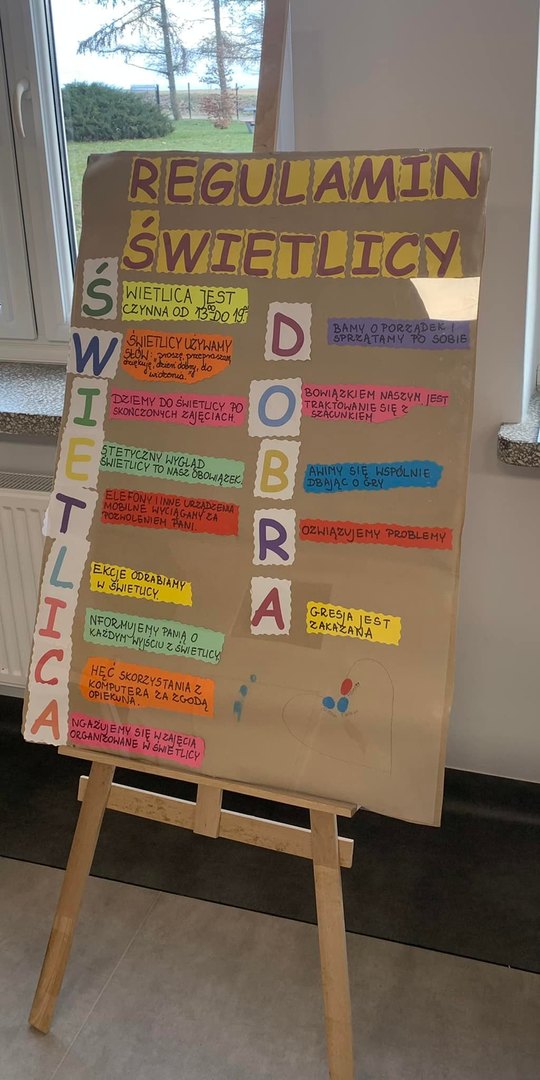 REGULAMIN
ŚWIETLICY
Ś WIETLICA JEST
CZYNNA OD 13⁰⁰ DO 19⁰⁰
W ŚWIETLICY UŻYWAMY
SŁÓW: "proszę, przepraszam,
dziękuję, "dzień dobry, do
widzenia."
I DZIEMY DO ŚWIETLICY PO
SKOŃCZONYCH ZAJĘCIACH.
E STETYCZNY WYGLĄD
ŚWIETLICY TO NASZ OBOWIĄZEK.
T ELEFONY I INNE URZĄDZENIA
MOBILNE WYCIĄGAMY ZA
POZWOLENIEM PANI.
L EKCJE ODRABIAMY
W ŚWIETLICY.
I NFORMUJEMY PANIĄ O
KAŻDYM WYJŚCIU Z ŚWIETLICY
C HĘĆ SKORZYSTANIA Z
KOMPUTERA ZA ZGODĄ
OPIEKUNA.
A NGAŻUJEMY SIĘ W ZAJĘCIA
ORGANIZOWANE W ŚWIETLICY
D BAMY O PORZĄDEK I
SPRZĄTAMY PO SOBIE
O BOWIĄZKIEM NASZYM JEST
TRAKTOWANIE SIĘ Z
SZACUNKIEM
B AWIMY SIĘ WSPÓLNIE
DBAJĄC O GRY
R OZWIĄZUJEMY PROBLEMY
A GRESJA JEST
ZAKAZANA